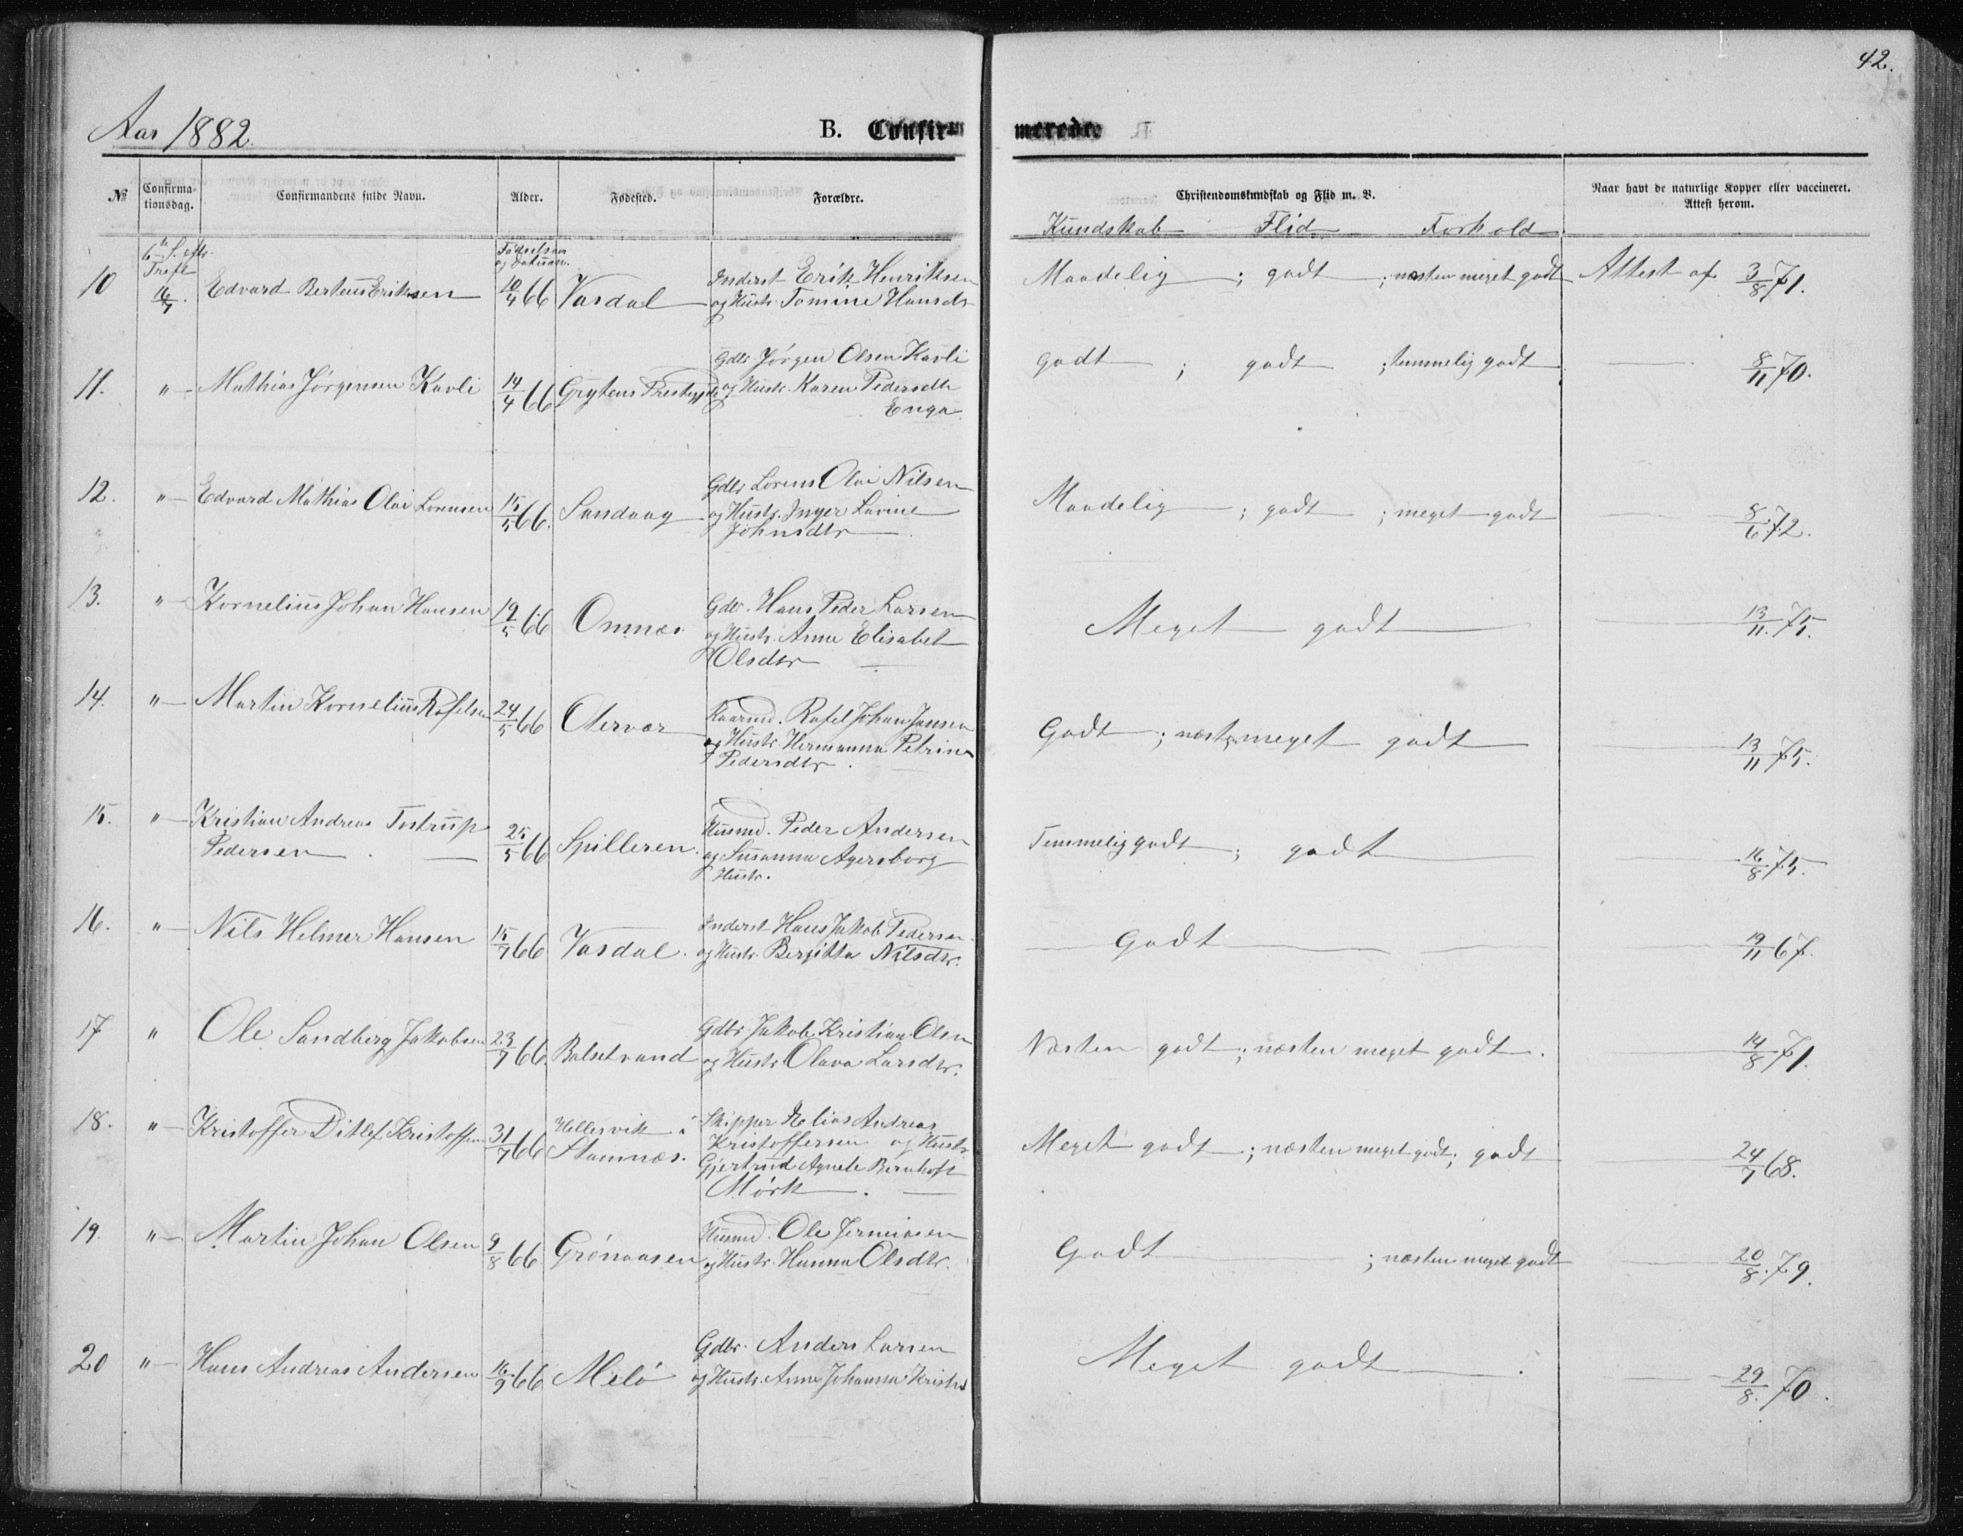 42.
Aar 1882.
B. Confirmerede.
№ Confirma-tionsdag. Confirmandens fulde Navn. Alder. Fødested. Forældre. Christendomskundskab og Flid m. V. Naar havt de naturlige Kopper eller vaccineret. Attest herom.
Kundskab Flid Forhold
6te S. eftr. Tref. 16/7 Fødselsaar og Datum.
10 Edvard Berteus Eriksen 10/4 66 Vasdal Inderst Erik Henriksen Maadelig ; godt ; næsten meget godt Attest af 3/8 71.
og Hustr. Tomine Hansdr
11. " Mathias Jørgensen Kavli 14/4 66 Grytens Prestegjd Gdbr Jørgen Olsen Kavli godt ; godt ; temmelig godt 8/11 70.
og Hustr. Karen Pedersdtr
Enga
12. " Edvard Mathias Olai Lorensen 15/5 66. Sandaag Gdbr Lorens Olai Nilsen Maadelig ; godt ; meget godt 8/6 72.
og Hustr. Inger Lavine
Johnsdtr
13. " Kornelius Johan Hansen 19/5 66 Omnæs Gdbr. Hans Peder Larsen Meget godt 13/11. 75.
og Hustr. Anne Elisabet
Olsdtr
14. " Martin Kornelius Rafelsen 24/5 66 Otervær Kaarmd. Rafel Johan Jansen Godt ; næst. meget godt 13/11 75.
og Hustr. Hermanna Petrine
Pedersdtr.
15. " Kristian Andreas Tostrup 25/5 66 Spilleren. Husmd. Peder Andersen Temmelig godt ; godt 16/8 75.
Pedersen og Susanna Agersborg
Hustr.
16. " Nils Helmer Hansen 15/7 66 Vasdal. Inderst Hans Jakob Pedersen Godt 19/11 67.
og Hustr. Bergitta Nilsdtr.
17 " Ole Sandberg Jakobsen 23/7 66. Balsetvand Gdbr Jakob Kristian Olsen Næsten godt ; næsten meget godt. 14/8 71.
og Hustr Olava Larsdtr.
18. " Kristoffer Ditlef Kristoffersen 31/7 66 Hellesvik i Skipper Elias Andreas Meget godt ; næsten meget godt ; godt 24/7 68.
Stamnæs. Kristoffersen og Hustr.
Gjertrud Agnete Bernhoft
Mørk
19. " Martin Johan Olsen 9/8 66 Grønaasen Husmd. Ole Jermiasen Godt ; næsten meget godt 20/8. 79.
og Hustr. Hanna Olsdtr.
20 " Hans Andreas Andersen 16/9 66 Melø Gdbr. Anders Larsen Meget godt 29/8. 70.
og Hustr. Anne Johanna Kristnd